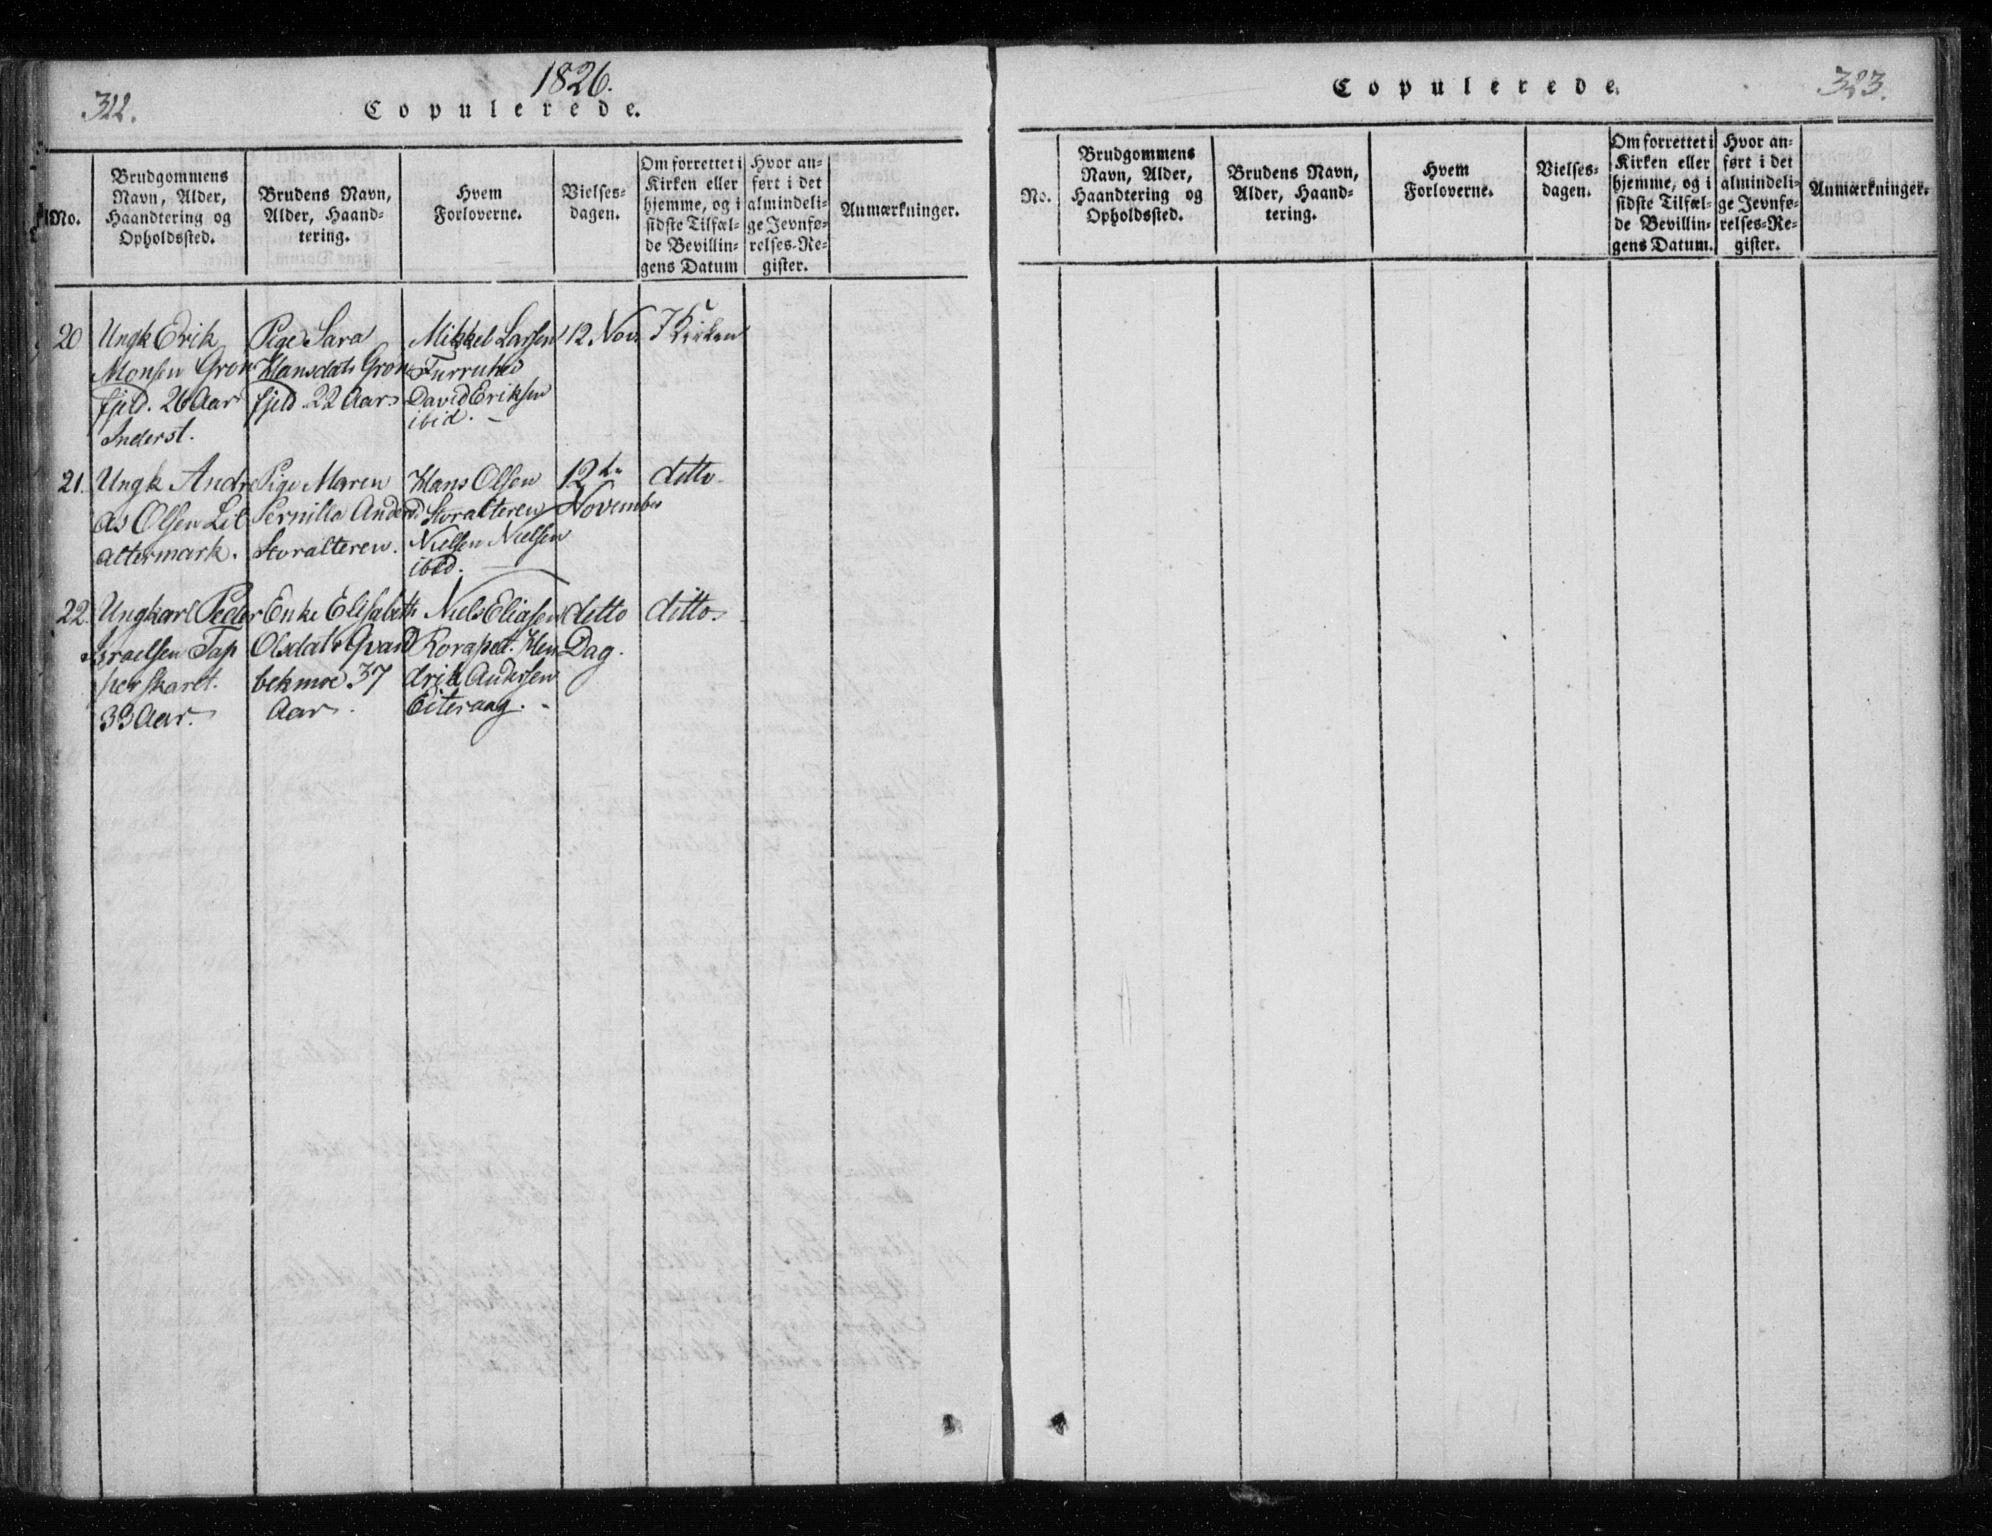 322.
1826.
Copulerede.
No.
Brudgommens
Navn, Alder,
Haandtering og
Opholdssted.
Brudens Navn,
Alder, Haand-
tering.
Hvem
Forloverne.
Vielses-
dagen.
Om forrettet i
Kirken eller
hjemme, og i
sidste Tilfæl-
de Bevillin-
gens Datum
Hvor an-
ført i det
almindeli-
ge Jevnfø-
relses-Re-
gister.
Anmærkninger.
20
Ungk Erik
Monsen Grøn
fjeld. 26 Aar
Inderst.
Pige Sara
Hansdatr Grøn
fjeld 22 Aar
Mikkel Larsen
Furruhei
David Eriksen
ibid.
12 Nov.
I Kirken
21.
Ungk Andre
as Olsen Lil
altermark.
Pige Maren
Pernilla Andersd.
Storalteren.
Hans Olsen
Storalteren
Nielsen Nielsen
ibid.
12te
November
ditto
22.
Ungkarl Peder
Israelsen Tap
perskaret.
33 Aar.
Enke Elisabeth
Olsdatr Qvand
bekmoe 37
Aar.
Niels Eliasen
Roraped. Hen
drik Andersen
Eiteraag.
ditto
Dag.
ditto
Copulerede.
323.
No.
Brudgommens
Navn, Alder,
Haandtering og
Opholdssted.
Brudens Navn,
Alder, Haand-
tering.
Hvem
Forloverne.
Vielses-
dagen.
Om forrettet i
Kirken eller
hjemme, og i
sidste Tilfæl-
de Bevillin-
gens Datum.
Hvor an-
ført i det
almindeli-
ge Jevnfø-
relses-Re-
gister.
Anmærkninger.